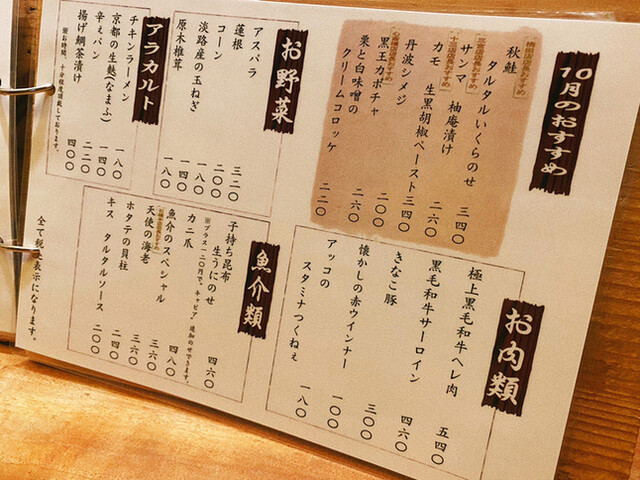 10月のおすすめ
秋鮭
タルタルいくらのせ 三四〇
サンマ 柚庵漬け 二六〇
カモ 生黒胡椒ペースト 三四〇
丹波シメジ 二六〇
黒王カボチャ 二〇〇
栗と白味噌の
クリームコロッケ 二二〇
お野菜
アスパラ 三二〇
蓮根 二〇〇
コーン 二〇〇
淡路産の玉ねぎ 一八〇
原木椎茸 一八〇
アラカルト
チキンラーメン 一八〇
京都の生麩(なまふ) 二二〇
辛ぇパン 一四〇
揚げ鯛茶漬け 四〇〇
※お時間、十分程度頂戴しております。
お肉類
極上黒毛和牛ヘレ肉 五四〇
黒毛和牛サーロイン 四六〇
きなこ豚 三〇〇
懐かしの赤ウインナー 一〇〇
アッコの
スタミナつくねぇ 一八〇
魚介類
子持ち昆布
生うにのせ 四六〇
※プラス一二〇円で、キャビア、追加のせできます。
カニ爪 四八〇
魚介のスペシャル
天使の海老 三六〇
ホタテの貝柱 二四〇
キス タルタルソース 二〇〇
全て税込表示になります。